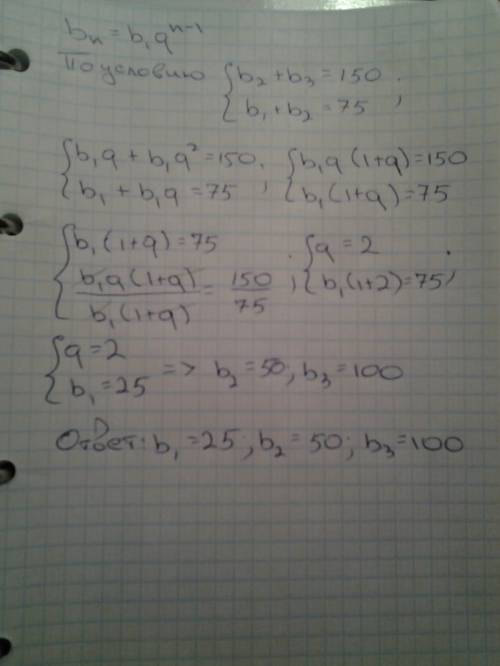 bₙ = b₁qⁿ⁻¹
По условию { b₂ + b₃ = 150 ; b₁ + b₂ = 75 ;
{ b₁q + b₁q² = 150 ; b₁ + b₁q = 75 ; { b₁q (1+q) = 150 ; b₁(1+q) = 75
{ b₁(1+q) = 75 ; b₁q (1+q) / b₁(1+q) = 150 / 75 ; { q = 2 ; b₁(1+2) = 75 ;
{ q = 2 ; b₁ = 25 => b₂ = 50; b₃ = 100
Ответ: b₁ = 25; b₂ = 50; b₃ = 100